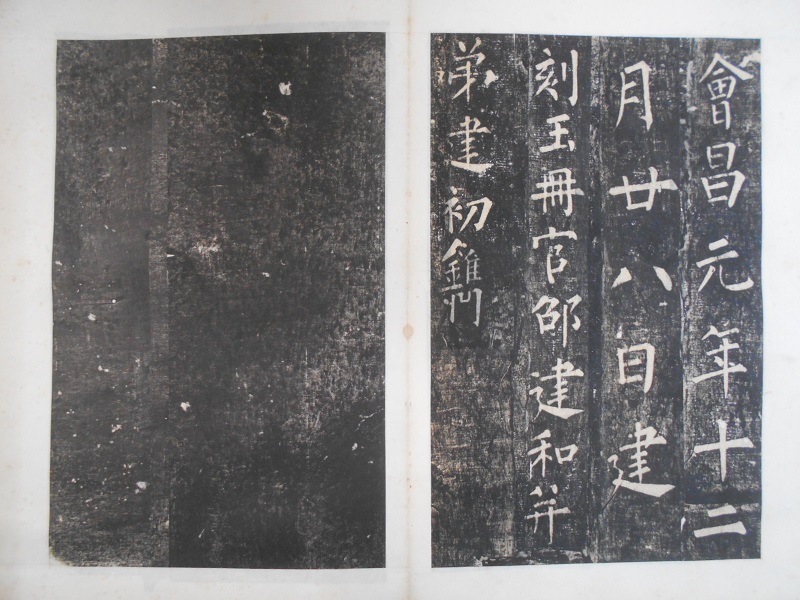 會昌元年十二
月廿八日建
刻玉冊官邵建和并
弟建初鐫